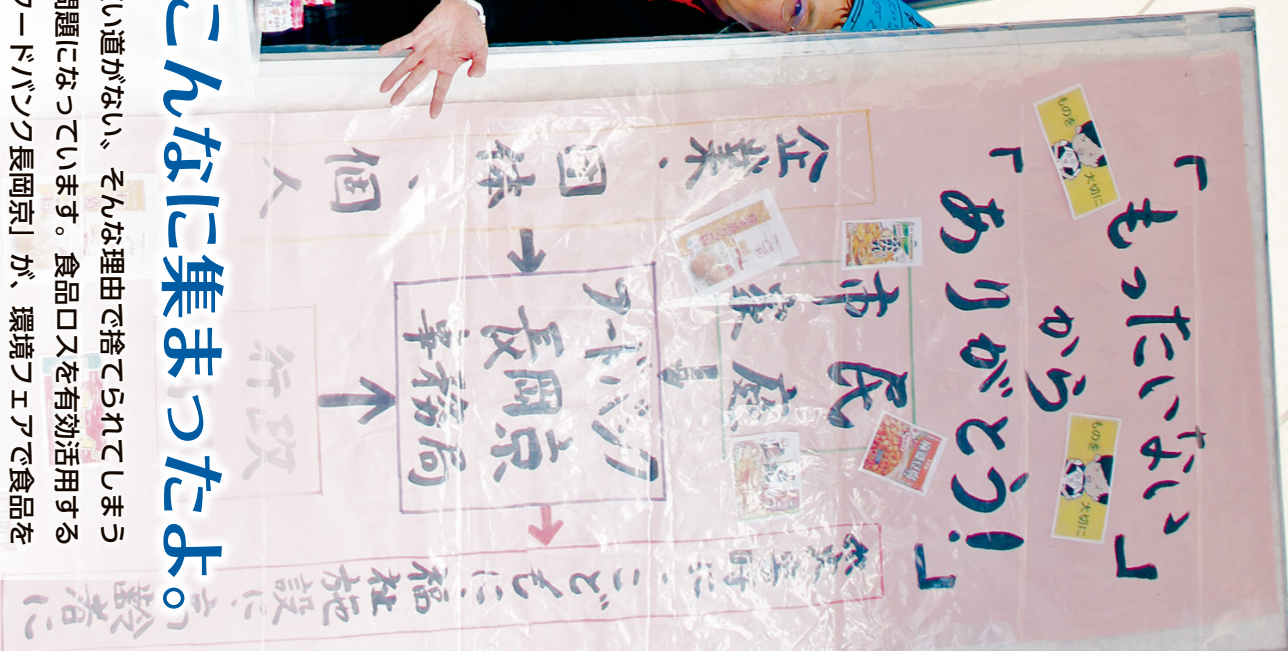 「もったいない」
から
「ありがとう!」
ものを
大切に
ものを
大切に
企業、団体、個人
市民
家庭
フードバンク
長岡京
事務局
行政
災害時に、こどもに、福祉施設に、高齢者に
こんなに集まったよ。
い道がない〟そんな理由で捨てられてしまう
問題になっています。食品ロスを有効活用する
フードバンク長岡京」が、環境フェアで食品を